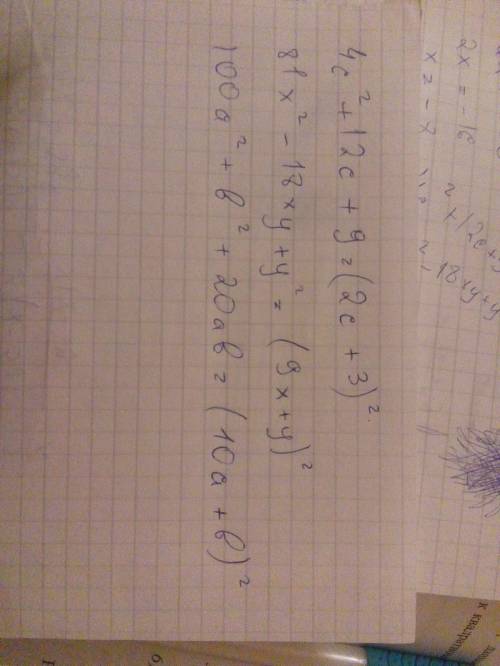 4c² + 12c + 9 = (2c + 3)².
81x² - 18xy + y² = (9x + y)²
100a² + b² + 20ab = (10a + b)²
2x = -16
² + 12c +
- 18xy + y
к квадратн